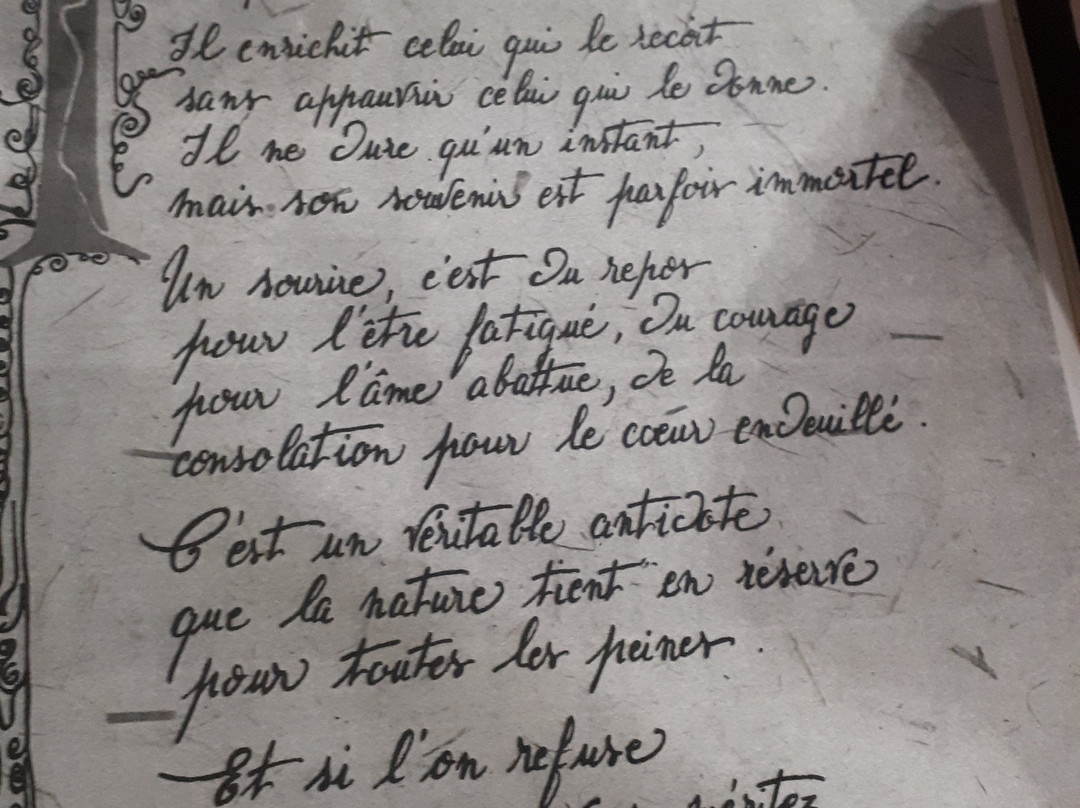 Il enrichit celui qui le reçoit
sans appauvrir celui qui le donne.
Il ne dure qu'un instant,
mais son souvenir est parfois immortel.
Un sourire, c'est du repos
pour l'être fatigué, du courage
pour l'âme abattue, de la
consolation pour le cœur endeuillé.
C'est un véritable antidote
que la nature tient en réserve
pour toutes les peines.
Et si l'on refuse
méritez